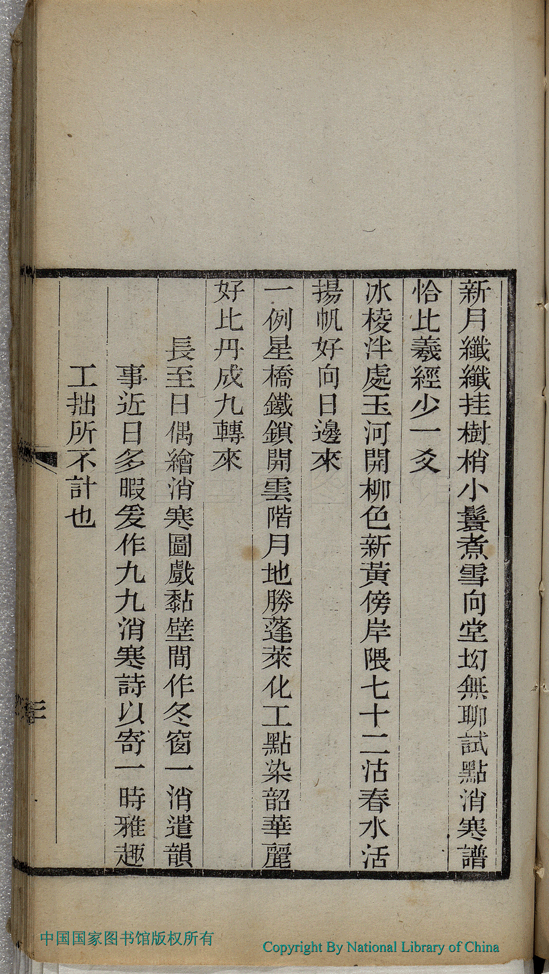 新月纖纖挂樹梢小鬟煮雪向堂坳無聊試點消寒譜
恰比羲經少一爻
冰棱泮處玉河開柳色新黃傍岸隈七十二沽春水活
揚帆好向日邊來
一例星橋鐵鎖開雲階月地勝蓬萊化工點染韶華麗
好比丹成九轉來
長至日偶繪消寒圖戲黏壁間作冬窗一消遣韻
事近日多暇爰作九九消寒詩以寄一時雅趣
工拙所不計也
三
中国国家图书馆版权所有
Copyright By National Library of China